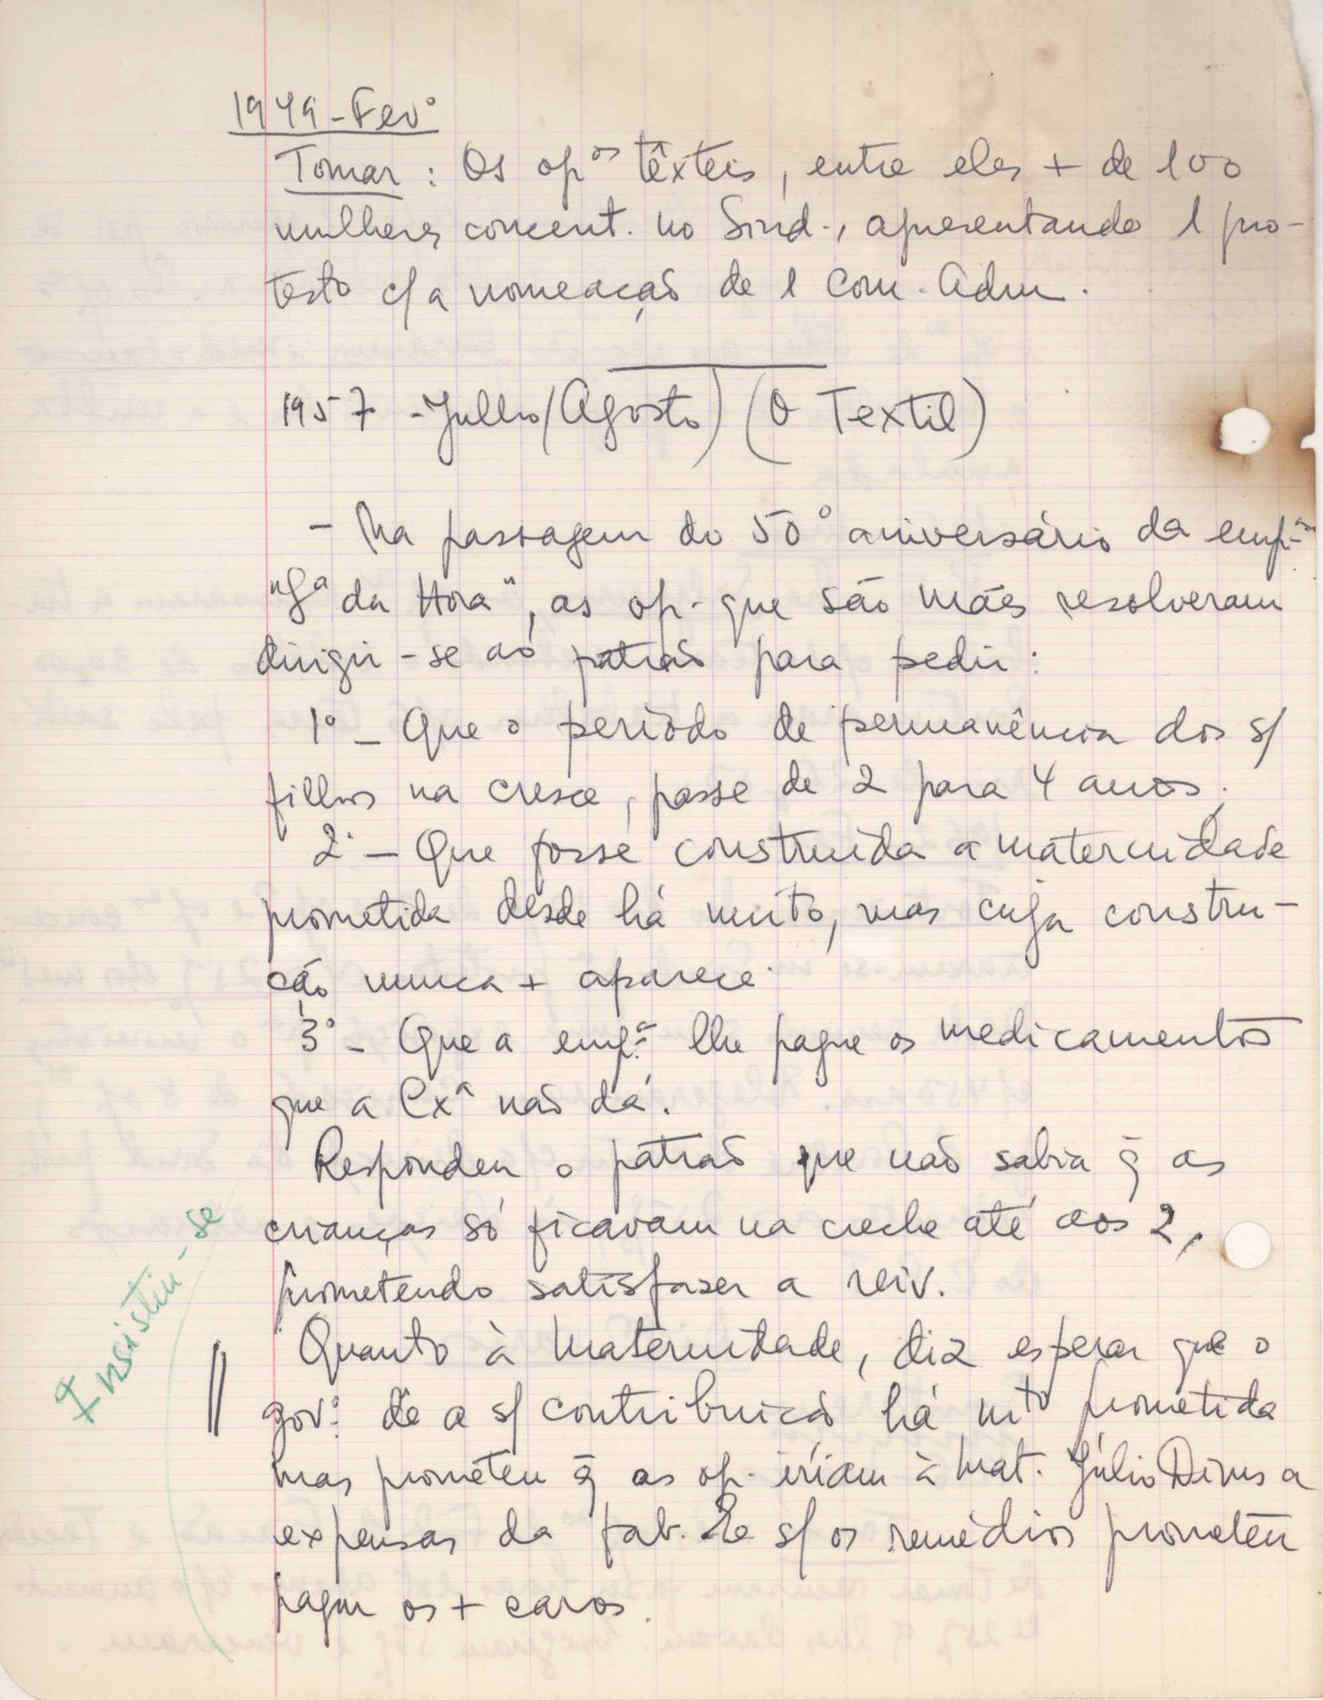 1949 - Fevº
Tomar : Os opºs têxteis, entre eles + de 100
mulheres concent. no Sind., apresentando 1 pro-
testo c/ a nomeação de 1 Com. Adm.
1957 - Julho/Agosto) (O Textil)
- Na passagem do 50º aniversário da empª
"Sª da Hora", as op. que são mães resolveram
dirigir-se ao patrão para pedir :
1º - Que o período de permanência dos s/
filhos na cresce, passe de 2 para 4 anos;
2º - Que fosse construida a maternidade
prometida desde há muito, mas cuja constru-
ção nunca + aparece.
3º - Que a empª lhe pague os medicamentos
que a Cxª não dá.
Respondeu o patrão que não sabia q̃ as
crianças só ficavam na creche até aos 2,
prometendo satisfazer a reiv.
Quanto à maternidade, diz esperar que o
govº dê a s/ contribuição há mto prometida
mas prometeu q̃ as op. iriam à Mat. Júlio Dinis a
expensas da fab. E s/ os remédios prometeu
pagar os + caros.
Insistiu-se